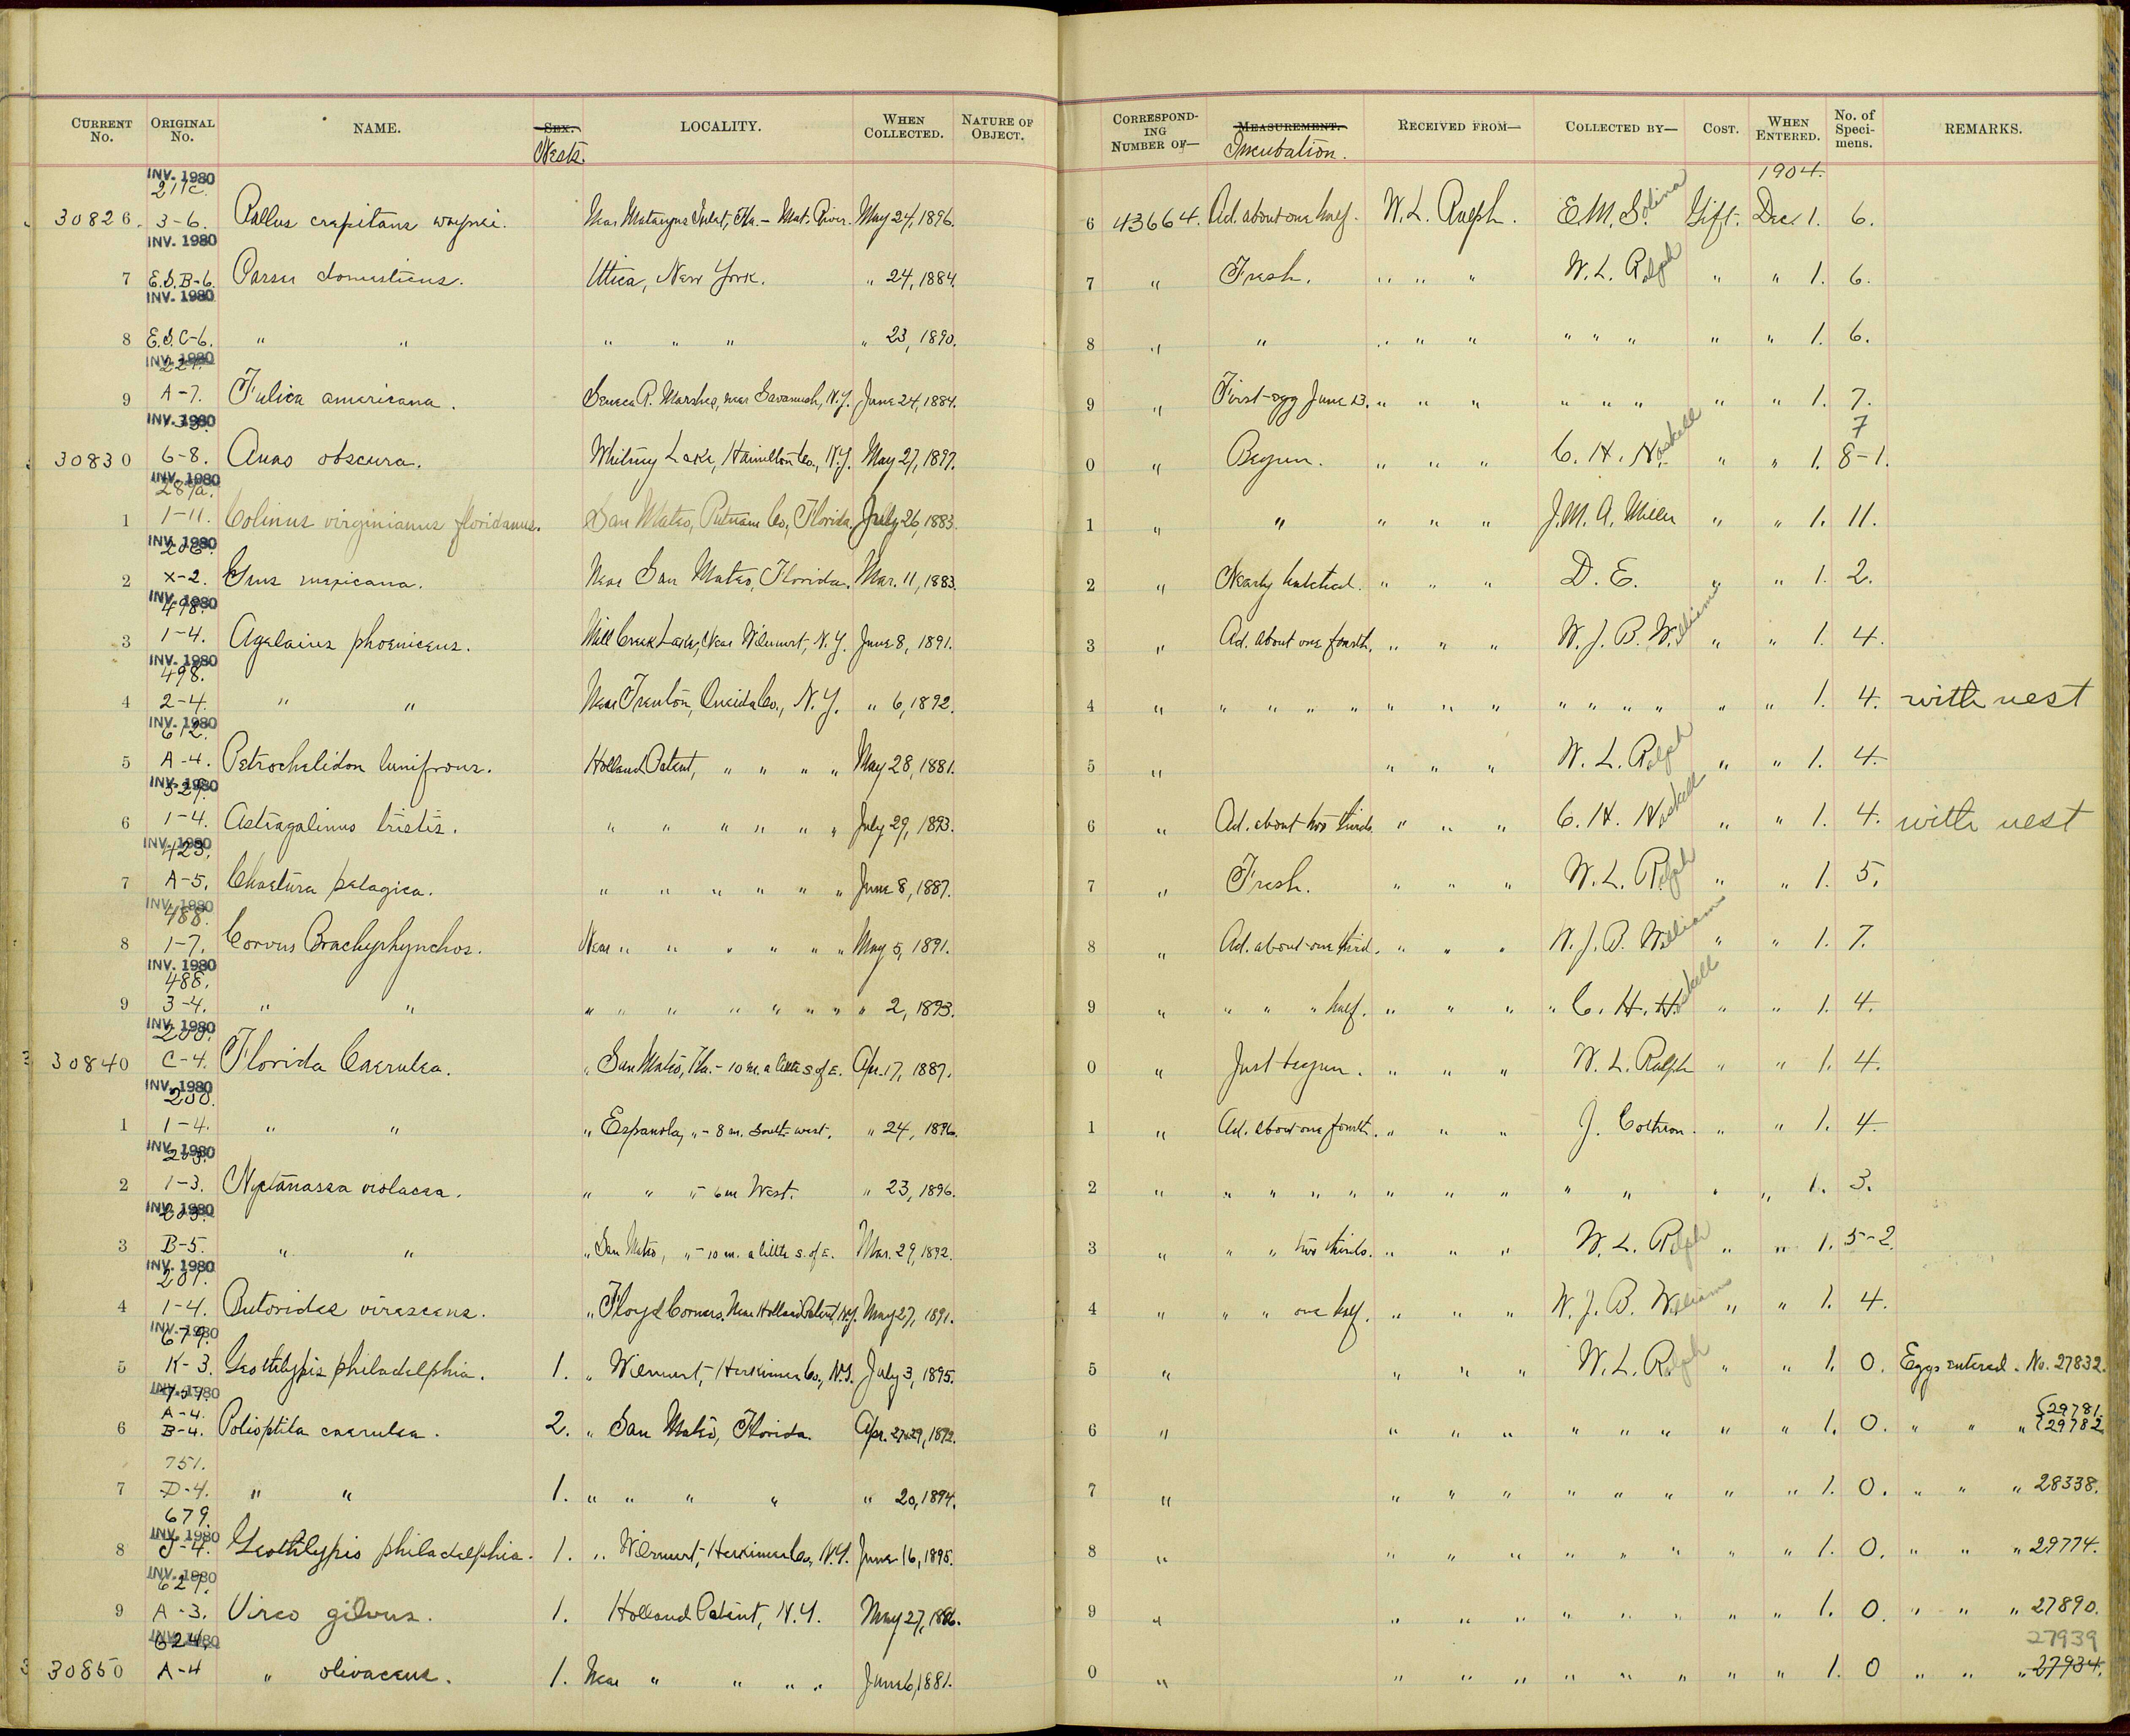 CURRENT No. ORIGINAL No. NAME. SEX. Nests. LOCALITY. WHEN COLLECTED. NATURE OF OBJECT. CORRESPONDING NUMBER OF— MEASUREMENT. Incubation. RECEIVED FROM— COLLECTED BY— COST. WHEN ENTERED. No. of Specimens. REMARKS.
1904.
INV. 1980
211c.
30826. 3-6. Rallus crepitans waynei. Near Matanzas Inlet, Fla. - Mat. River. May 24, 1896. 6 43664. Ad. about one half. W. L. Ralph. E. M. Solina Gift. Dec. 1. 6.
INV. 1980
7 E.S.B-6. Passer domesticus. Utica, New York. " 24, 1884. 7 " Fresh. " " " W. L. Ralph " " 1. 6.
INV. 1980
8 E.S.C-6. " " " " " " 23, 1890. 8 " " " " " " " " " " 1. 6.
INV. 1980
221.
9 A-7. Fulica americana. Seneca R. Marshes, near Savannah, N.Y. June 24, 1884. 9 " First egg June 13. " " " " " " " " 1. 7.
INV. 1980
7
30830 6-8. Anas obscura. Whitney Lake, Hamilton Co., N.Y. May 27, 1897. 0 " Begun. " " " C. H. Haskell " " 1. 8-1.
INV. 1980
289a.
1 1-11. Colinus virginianus floridanus. San Mateo, Putnam Co., Florida. July 26, 1883. 1 " " " " " J. M. A. Miller " " 1. 11.
INV. 1980
206.
2 X-2. Grus mexicana. Near San Mateo, Florida. Mar. 11, 1883. 2 " Nearly hatched. " " " D. E. " " 1. 2.
INV. 1980
498.
3 1-4. Agelaius phoeniceus. Mill Creek Lake, Near Wilmurt, N.Y. June 8, 1891. 3 " Ad. about one fourth. " " " W. J. B. Williams " " 1. 4.
INV. 1980
498.
4 2-4. " " Near Trenton, Oneida Co., N.Y. " 6, 1892. 4 " " " " " " " " " " " " " " 1. 4. with nest
INV. 1980
612.
5 A-4. Petrochelidon lunifrons. Holland Patent, " " " " May 28, 1881. 5 " " " " W. L. Ralph " " 1. 4.
INV. 1980
529.
6 1-4. Astragalinus tristis. " " " " " " July 29, 1893. 6 " Ad. about two thirds " " " C. H. Haskell " " 1. 4. with nest
INV. 1980
423.
7 A-5. Chaetura pelagica. " " " " " " June 8, 1887. 7 " Fresh. " " " W. L. Ralph " " 1. 5.
INV. 1980
488.
8 1-7. Corvus Brachyrhynchos. Near " " " " " " May 5, 1891. 8 " Ad. about one third. " " " W. J. B. Williams " " 1. 7.
INV. 1980
488.
9 3-4. " " " " " " " " " " 2, 1893. 9 " " " " half. " " " " C. H. Haskell " " 1. 4.
INV. 1980
200.
30840 C-4. Florida Caerulea. " San Mateo, Fla. - 10 m. a little S. of E. Apr. 17, 1887. 0 " Just begun. " " " W. L. Ralph " " 1. 4.
INV. 1980
200.
1 1-4. " " " Espanola, " - 8 m. South-west. " 24, 1896. 1 " Ad. about one fourth. " " " J. Cothron. " " 1. 4.
INV. 1980
203.
2 1-3. Nyctanassa violacea. " " " - 6 m West. " 23, 1896. 2 " " " " " " " " " " " " 1. 3.
INV. 1980
203.
3 B-5. " " " San Mateo, " - 10 m. a little S. of E. Mar. 29, 1892. 3 " " " two thirds. " " " W. L. Ralph " " 1. 5-2.
INV. 1980
201.
4 1-4. Butorides virescens. " Floyd Corners, Near Holland Patent, N.Y. May 27, 1891. 4 " " " one half. " " " W. J. B. Williams " " 1. 4.
INV. 1980
679.
5 K-3. Geothlypis philadelphia. 1. " Wilmurt, - Herkimer Co., N.Y. July 3, 1895. 5 " " " " W. L. Ralph " " 1. 0. Eggs entered - No. 27832.
INV. 1980
751.
6 A-4. B-4. Polioptila caerulea. 2. " San Mateo, Florida. Apr. 27&29, 1892. 6 " " " " " " " " " 1. 0. " " " {29781. 29782
751.
7 D-4. " " 1. " " " " " 20, 1894. 7 " " " " " " " " " 1. 0. " " " 28338.
679.
INV. 1980
8 J-4. Geothlypis philadelphia. 1. " Wilmurt, - Herkimer Co., N.Y. June 16, 1895. 8 " " " " " " " " " 1. 0. " " " 29774.
INV. 1980
627.
9 A-3. Vireo gilvus. 1. Holland Patent, N.Y. May 27, 1886. 9 " " " " " " " " " 1. 0. " " " 27890.
INV. 1980
624.
27939
30850 A-4 " olivaceus. 1. Near " " " " June 6, 1881. 0 " " " " " " " " " 1. 0 " " " 27934.